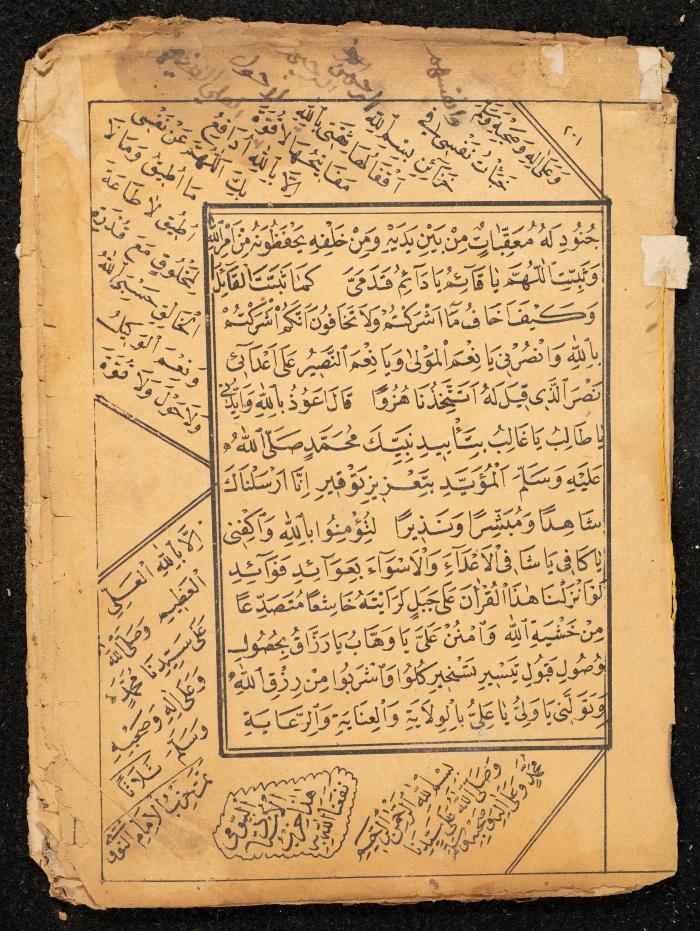 ٢٠١
جُنُودِ لَهُ مُعَقِّبَاتٌ مِنْ بَيْنِ يَدَيْهِ وَمِنْ خَلْفِهِ يَحْفَظُونَهُ مِنْ أَمْرِ اللهِ
وَثَبِّتْ اَللّٰهُمَّ يَا قَائِمُ يَا دَائِمُ قَدَمَيَّ كَمَا ثَبَّتَّ الْقَائِلَ
وَكَيْفَ أَخَافُ مَا أَشْرَكْتُمْ وَلَا تَخَافُونَ أَنَّكُمْ أَشْرَكْتُمْ
بِاللهِ وَانْصُرْنِي يَا نِعْمَ الْمَوْلَى وَيَا نِعْمَ النَّصِيرُ عَلَى أَعْدَائِي
نَصْرَ الَّذِي قِيلَ لَهُ أَتَتَّخِذُنَا هُزُوًا قَالَ أَعُوذُ بِاللهِ وَأَيِّدْنِي
يَا طَالِبُ يَا غَالِبُ بِتَأْيِيدِ نَبِيِّكَ مُحَمَّدٍ صَلَّى اللهُ
عَلَيْهِ وَسَلَّمَ الْمُؤَيَّدِ بِتَعْزِيزِ تَوْقِيرِ إِنَّا أَرْسَلْنَاكَ
شَاهِدًا وَمُبَشِّرًا وَنَذِيرًا لِتُؤْمِنُوا بِاللهِ وَاكْفِنِي
يَا كَافِي يَا شَافِي الْأَعْدَاءَ وَالْأَسْوَاءَ بِعَوَائِدِ فَوَائِدِ
لَوْ أَنْزَلْنَا هٰذَا الْقُرْآنَ عَلَى جَبَلٍ لَرَأَيْتَهُ خَاشِعًا مُتَصَدِّعًا
مِنْ خَشْيَةِ اللهِ وَامْنُنْ عَلَيَّ يَا وَهَّابُ يَا رَزَّاقُ بِحُصُولِ
وُصُولِ قَبُولِ تَيْسِيرِ تَسْخِيرِ كُلُوا وَاشْرَبُوا مِنْ رِزْقِ اللهِ
وَتَوَلَّنِي يَا وَلِيُّ يَا عَلِيُّ بِالْوِلَايَةِ وَالْعِنَايَةِ وَالرِّعَايَةِ
وَعَلَى آلِهِ وَصَحْبِهِ وَسَلَّمَ
خَبَأْتُ نَفْسِي فِي
خَزَائِنِ بِسْمِ اللهِ
أَقْفَالُهَا ثِقَتِي بِاللهِ
مَفَاتِيحُهَا لَا قُوَّةَ
إِلَّا بِاللهِ أُدَافِعُ
بِكَ اللّٰهُمَّ عَنْ نَفْسِي
مَا أُطِيقُ وَمَا لَا
أُطِيقُ لَا طَاقَةَ
لِمَخْلُوقٍ مَعَ قُدْرَةِ
الْخَالِقِ حَسْبِيَ اللهُ
وَنِعْمَ الْوَكِيلُ
وَلَا حَوْلَ وَلَا قُوَّةَ
إِلَّا بِاللهِ الْعَلِيِّ
الْعَظِيمِ وَصَلَّى اللهُ
عَلَى سَيِّدِنَا مُحَمَّدٍ
وَعَلَى آلِهِ وَصَحْبِهِ
وَسَلَّمَ ثَلَاثًا
تمت حزب الإمام النووي
بِسْمِ اللهِ الرَّحْمٰنِ الرَّحِيمِ
وَصَلَّى اللهُ عَلَى سَيِّدِنَا
مُحَمَّدٍ وَعَلَى آلِهِ وَصَحْبِهِ وَسَلَّمَ